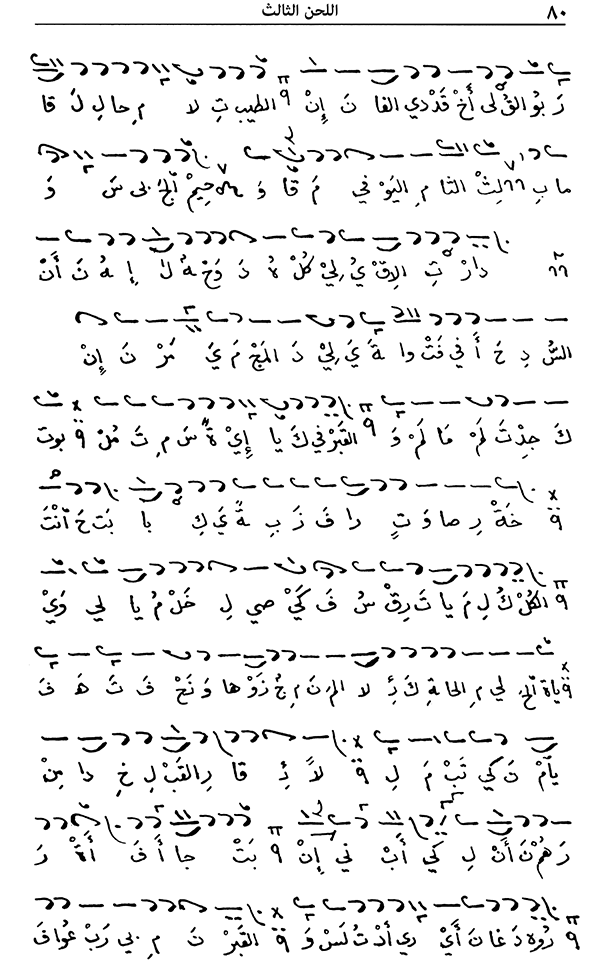 ٨٠ اللحن الثالث
رَ بُو القُ لى أَخْ قَدْ دي الفا نَ إِنْ الطيب تِ لا مِ حا لِ لَ قا
ما بِ لِثْ الثا مِ اليَوْ في مَ قا وَ حيمْ الجَ بى سَ وَ
دارْ تِ الاِقْ يُ لِيْ كُلْ هُ دَ وَحْ هُ لَ إِ هُ نَ أَنْ
السُ دِ حَ أَ في فَتْ وا ةَ يَ لِيْ دَ المَجْ مَ يَ مَرْ نَ إِنْ
كَ جِدْ تَ لَمْ ما لَمْ وَ القَبْرْ في كَ يا إِيْ ةً سَ مِ تَ مُلْ بوت
خَةْ رِ صا وَ تٍ را فَ زَ بِ ةً يَ كِ با بَت حَ أنْتَ
الكُلْ كُ لِ مَ يا تَ رِقْ سُ فَ كَيْ صي لِ خَلْ مُ يا لي وَيْ
ياة الحَ لي مِ الحا ةِ كَ ئِ لا المَ نَ مِ جُ زَوْ ها وَ نَحْ فَ تَ هَ فَ
يأمْ تَ كي تَبْ مَ لِ لاً ئِ قا رِ القَبْ لِ خِ دا مِنْ
رَ هُمْ نَ أَنْ لِ كي أَبْ في إِنْ بَتْ جا أَ فَ أَةْ رَ
رُوهْ دَ غا نَ أَيْ ري أَدْ تُ لَسْ وَ القَبْرْ تَ مِ بي رَبْ عُوا فَ